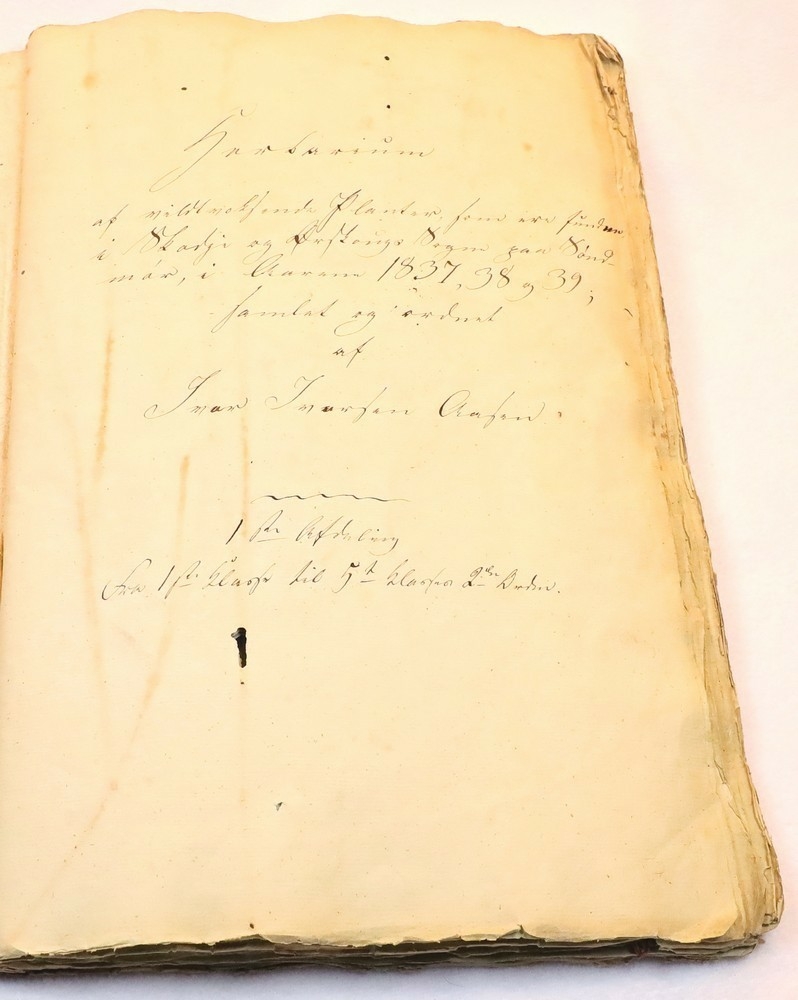 Herbarium
af vildtvoksende Planter, som ere fundne
i Skodje og Ørskougs Sogne paa Sønd-
mør, i Aarene 1837, 38 og 39;
samlet og ordnet
af
Ivar Ivarsen Aasen.
1ste Afdeling
Fra 1ste Klasse til 5te Klasses 2den Orden.